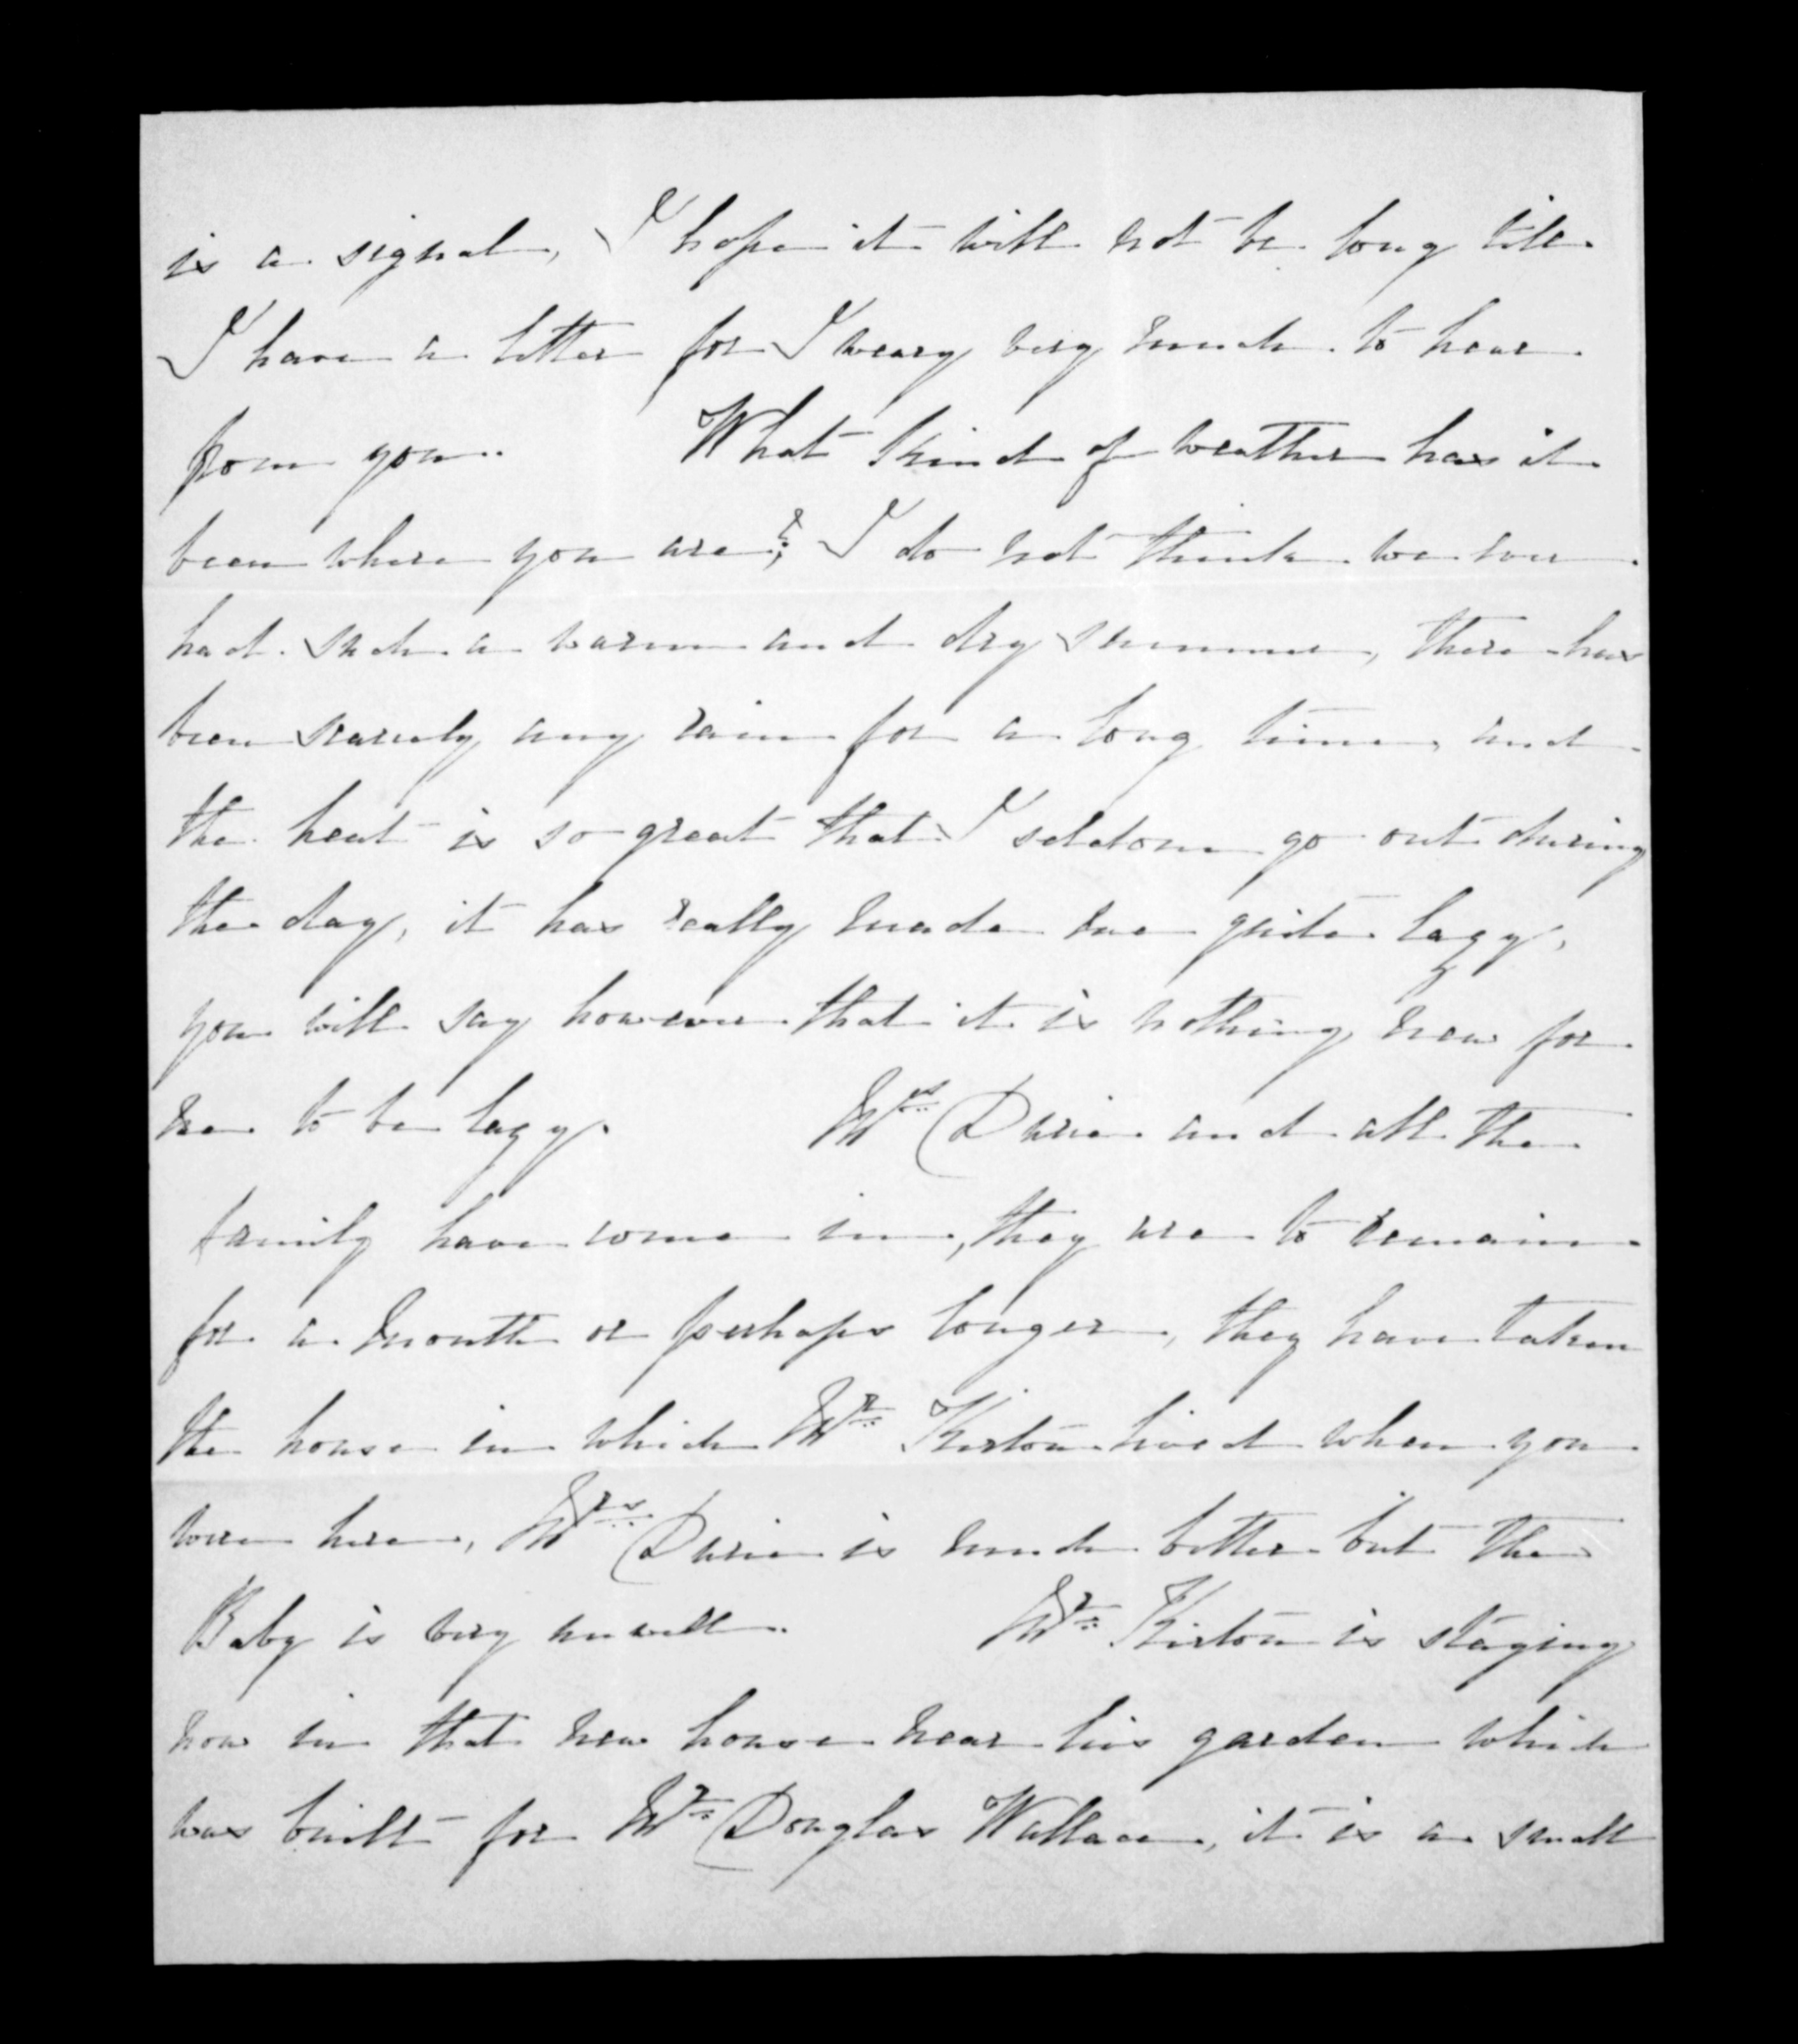 is a signal, I hope it will not be long till
I have a letter for I weary very much to hear
from you. What kind of weather has it
been where you are?; I do not think we ever
had such a warm and dry summer, there has
been scarcely any rain for a long time, and
the heat is so great that I seldom go out during
the day, it has really made me quite lazy,
you will say however that it is nothing new for
me to be lazy. Mrs Durie and all the
family have come in, they are to remain
for a month or perhaps longer, they have taken
the house in which Mr Kirton lived when you
were here, Mrs Durie is much better but the
Baby is very unwell. Mr Kirton is staying
now in that new house near his garden which
was built for Mr Douglas Wallace, it is a small